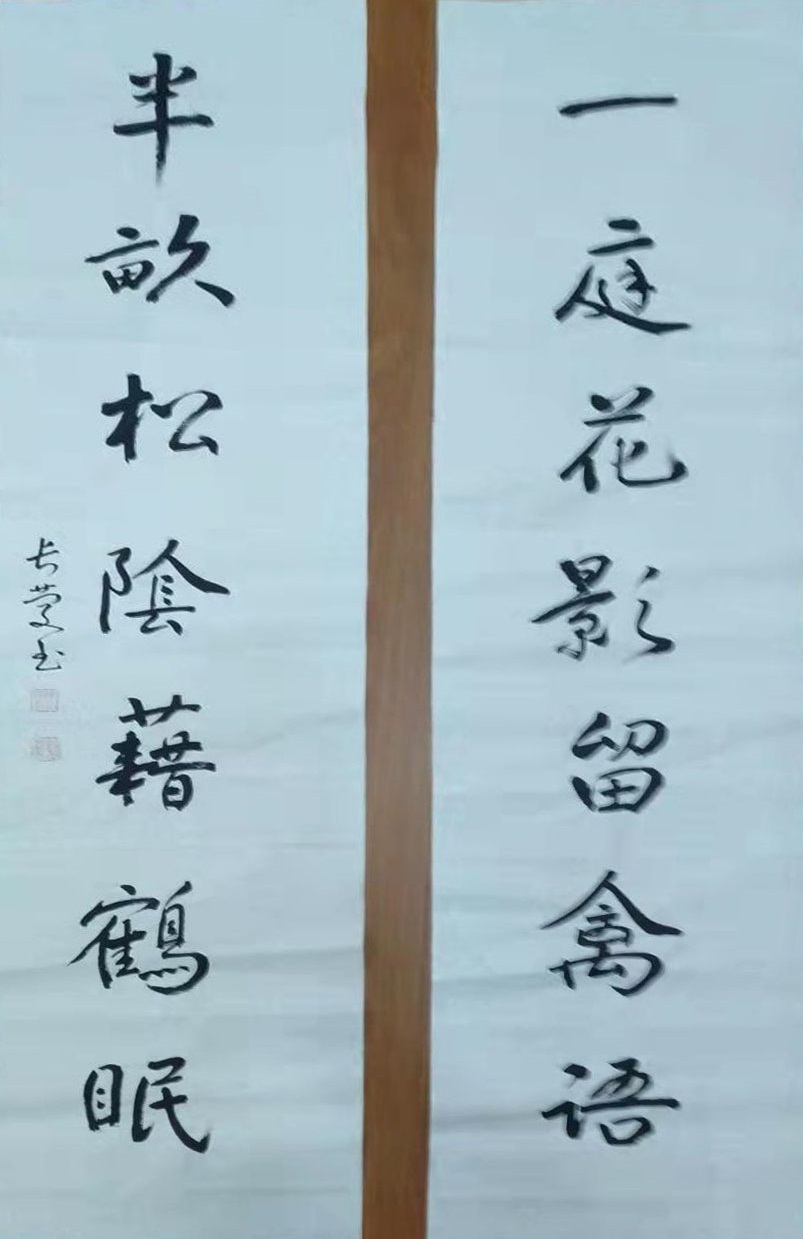 一庭花影留禽語
半畝松陰藉鶴眠